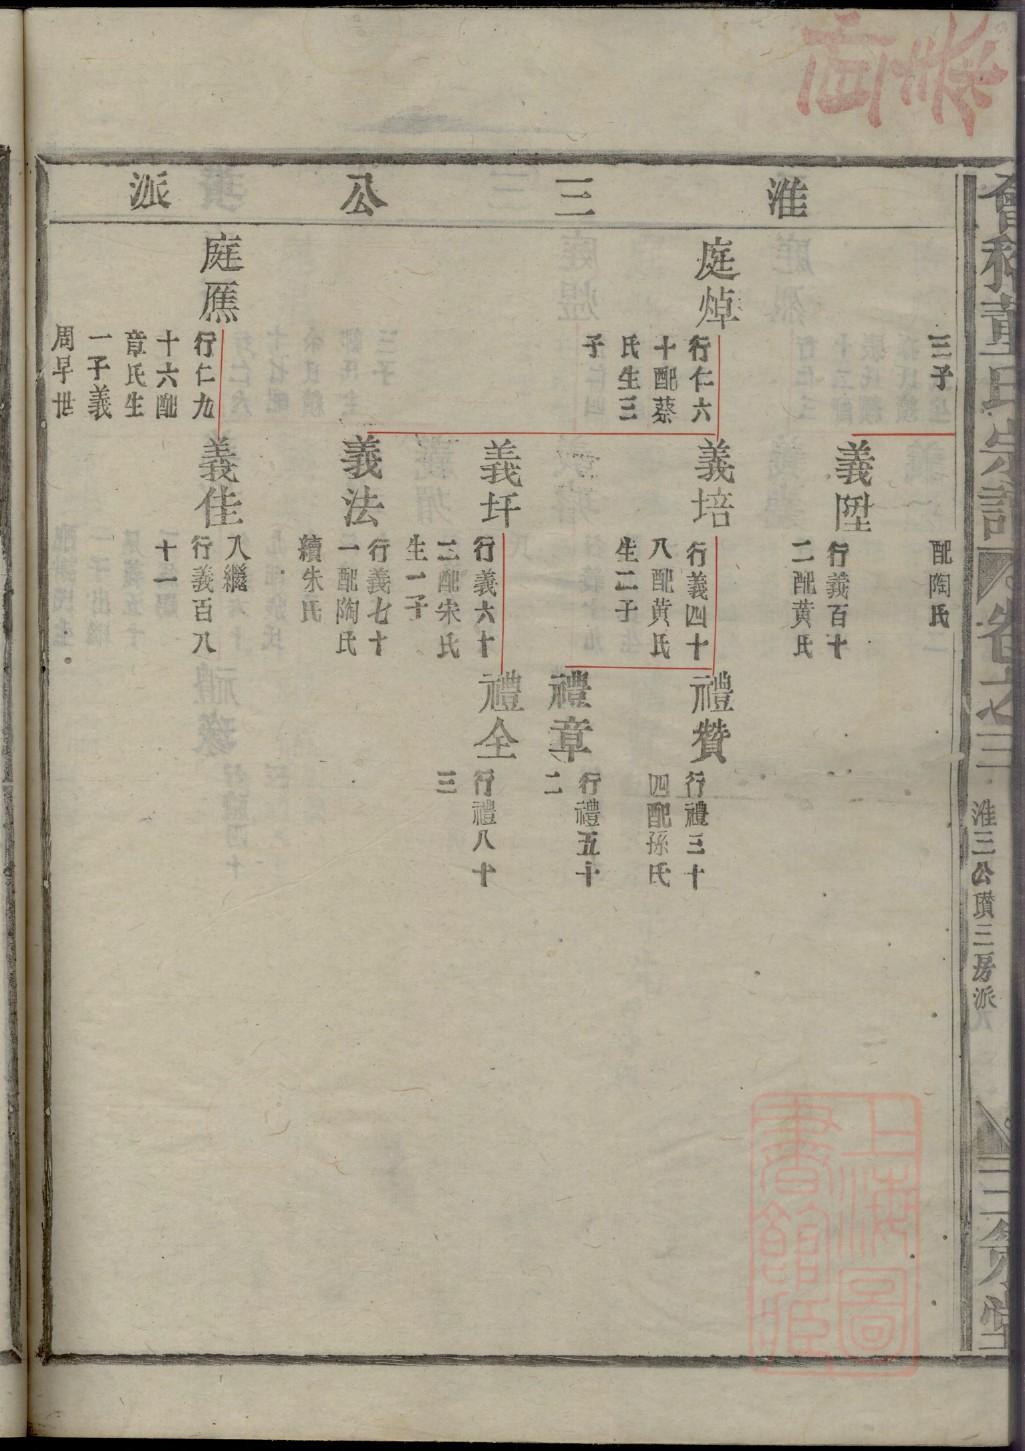 淮三公派
三子
庭焯
行仁六
十配蔡
氏生三
子
庭鴈
行仁九
十六配
章氏生
一子義
周早世
配陶氏
義陞
行義百十
二配黃氏
義培
行義四十
八配黃氏
生二子
義圩
行義六十
二配宋氏
生一子
義法
行義七十
一配陶氏
續朱氏
義佳
入繼
行義百八
十一
禮贊
行禮三十
四配孫氏
禮章
行禮五十
二
禮全
行禮八十
三
董氏宗譜
卷之三
淮三公瓚三房派
上海圖
書館藏